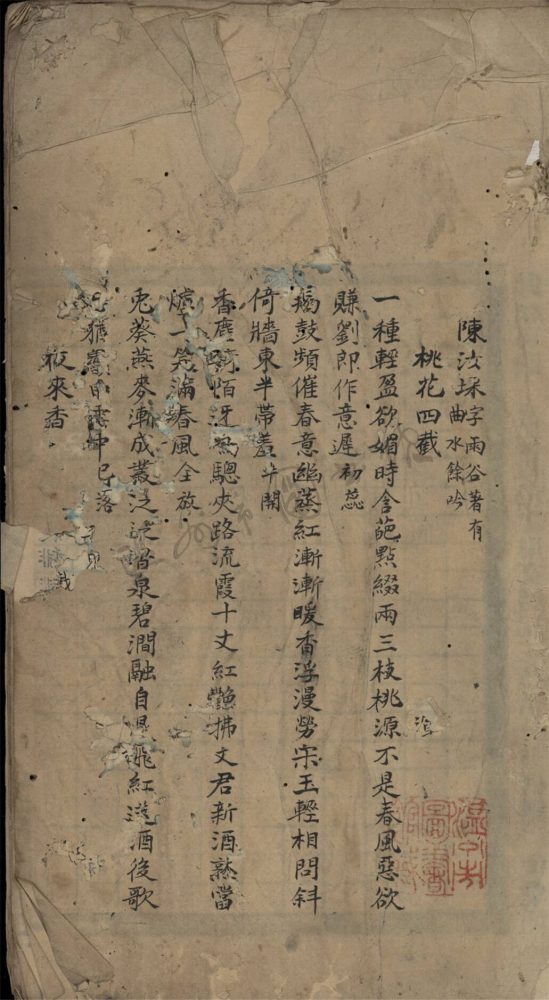 陳汝埰字雨谷著有
曲水餘吟
桃花四截
一種輕盈欲媚時含葩點綴兩三枝桃源不是春風惡欲
賺劉郎作意遲初蕊
羯鼓頻催春意幽蒸紅漸漸暖香浮漫勞宋玉輕相問斜
倚牆東半帶羞半開
香塵 陌 驄夾路流霞十丈紅艷拂文君新酒熟當
爐一笑滿春風全放
兔葵燕麥漸成叢泛 泉碧澗融自是飛紅 酒後歌
已落
夜來香